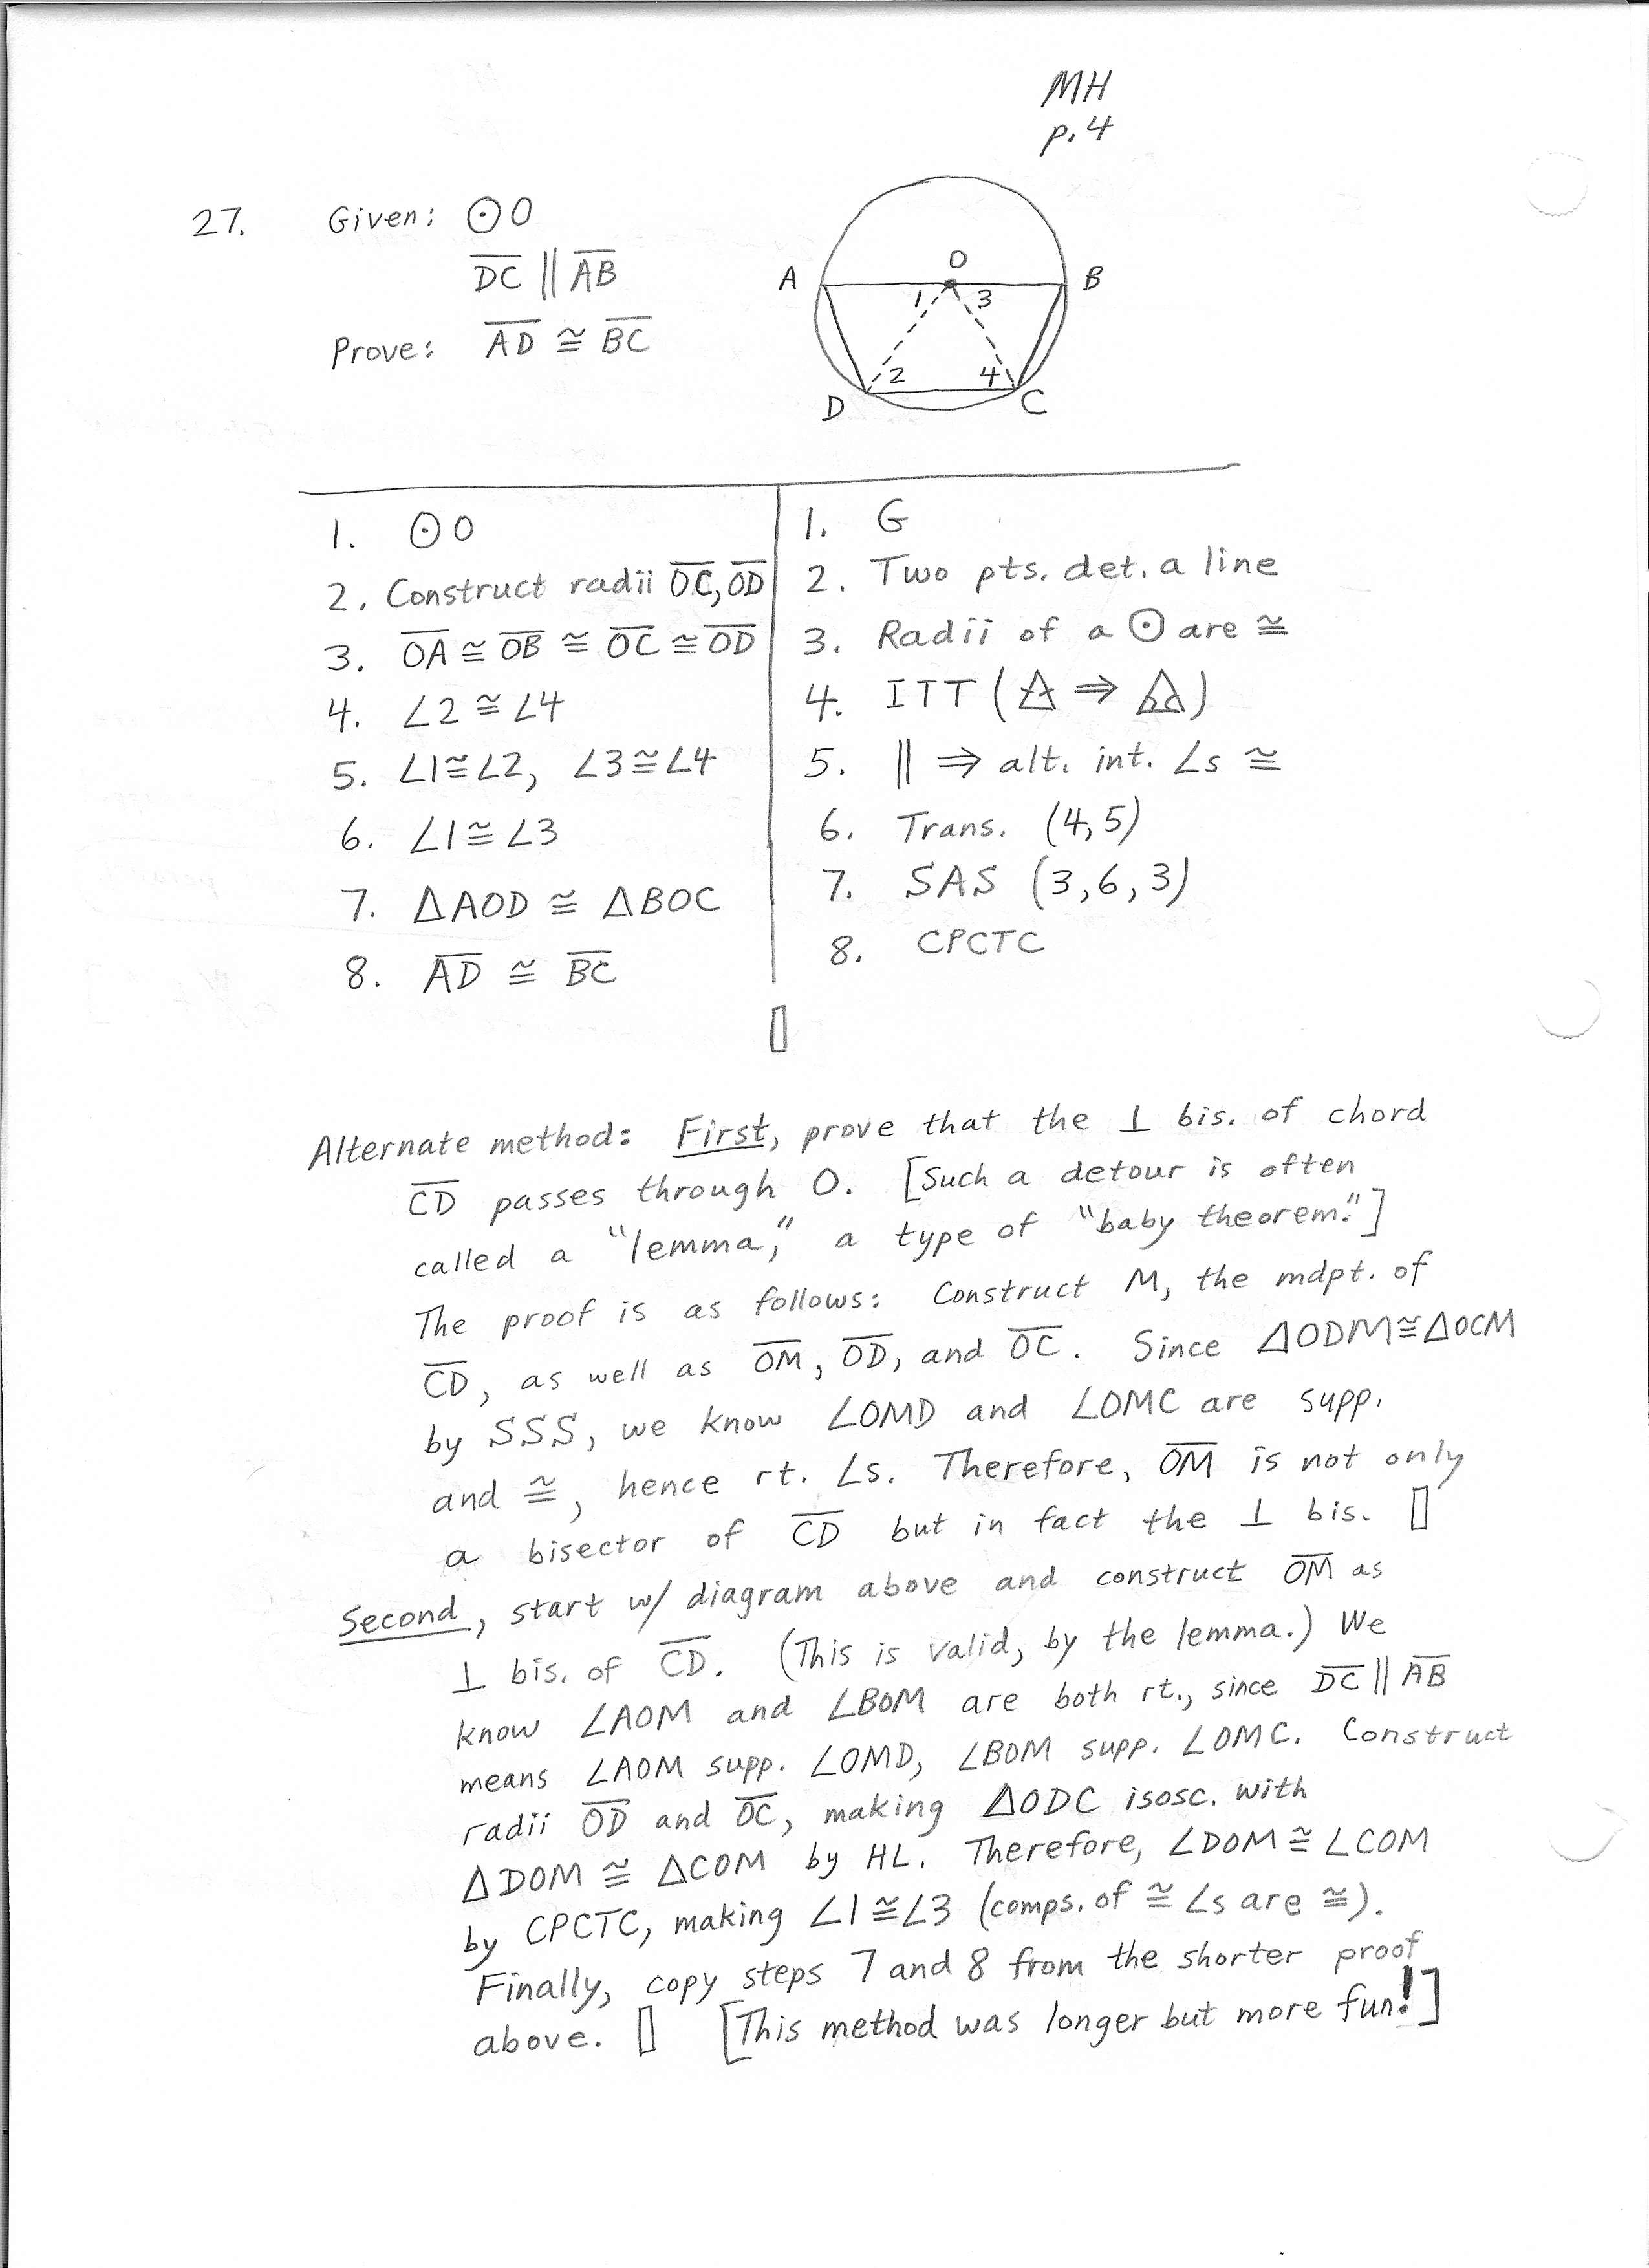 MH
p. 4
27. Given: ⊙O
D̅C̅ ∥ A̅B̅
Prove: A̅D̅ ≅ B̅C̅
A O B
1 3
2 4
D C
1. ⊙O 1. G
2. Construct radii O̅C̅, O̅D̅ 2. Two pts. det. a line
3. O̅A̅ ≅ O̅B̅ ≅ O̅C̅ ≅ O̅D̅ 3. Radii of a ⊙ are ≅
4. ∠2 ≅ ∠4 4. ITT (△ ⇒ △)
5. ∠1 ≅ ∠2, ∠3 ≅ ∠4 5. ∥ ⇒ alt. int. ∠s ≅
6. ∠1 ≅ ∠3 6. Trans. (4,5)
7. △AOD ≅ △BOC 7. SAS (3,6,3)
8. A̅D̅ ≅ B̅C̅ 8. CPCTC
▯
Alternate method: First, prove that the ⊥ bis. of chord
C̅D̅ passes through O. [Such a detour is often
called a "lemma," a type of "baby theorem."]
The proof is as follows: Construct M, the mdpt. of
C̅D̅, as well as O̅M̅, O̅D̅, and O̅C̅. Since △ODM ≅ △OCM
by SSS, we know ∠OMD and ∠OMC are supp.
and ≅, hence rt. ∠s. Therefore, O̅M̅ is not only
a bisector of C̅D̅ but in fact the ⊥ bis. ▯
Second, start w/ diagram above and construct O̅M̅ as
⊥ bis. of C̅D̅. (This is valid, by the lemma.) We
know ∠AOM and ∠BOM are both rt., since D̅C̅ ∥ A̅B̅
means ∠AOM supp. ∠OMD, ∠BOM supp. ∠OMC. Construct
radii O̅D̅ and O̅C̅, making △ODC isosc. with
△DOM ≅ △COM by HL. Therefore, ∠DOM ≅ ∠COM
by CPCTC, making ∠1 ≅ ∠3 (comps. of ≅ ∠s are ≅).
Finally, copy steps 7 and 8 from the shorter proof
above. ▯ [This method was longer but more fun!]